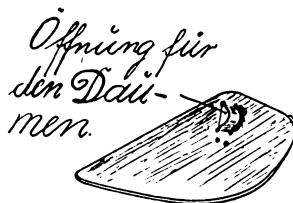 Öffnung für
den Dau-
men.